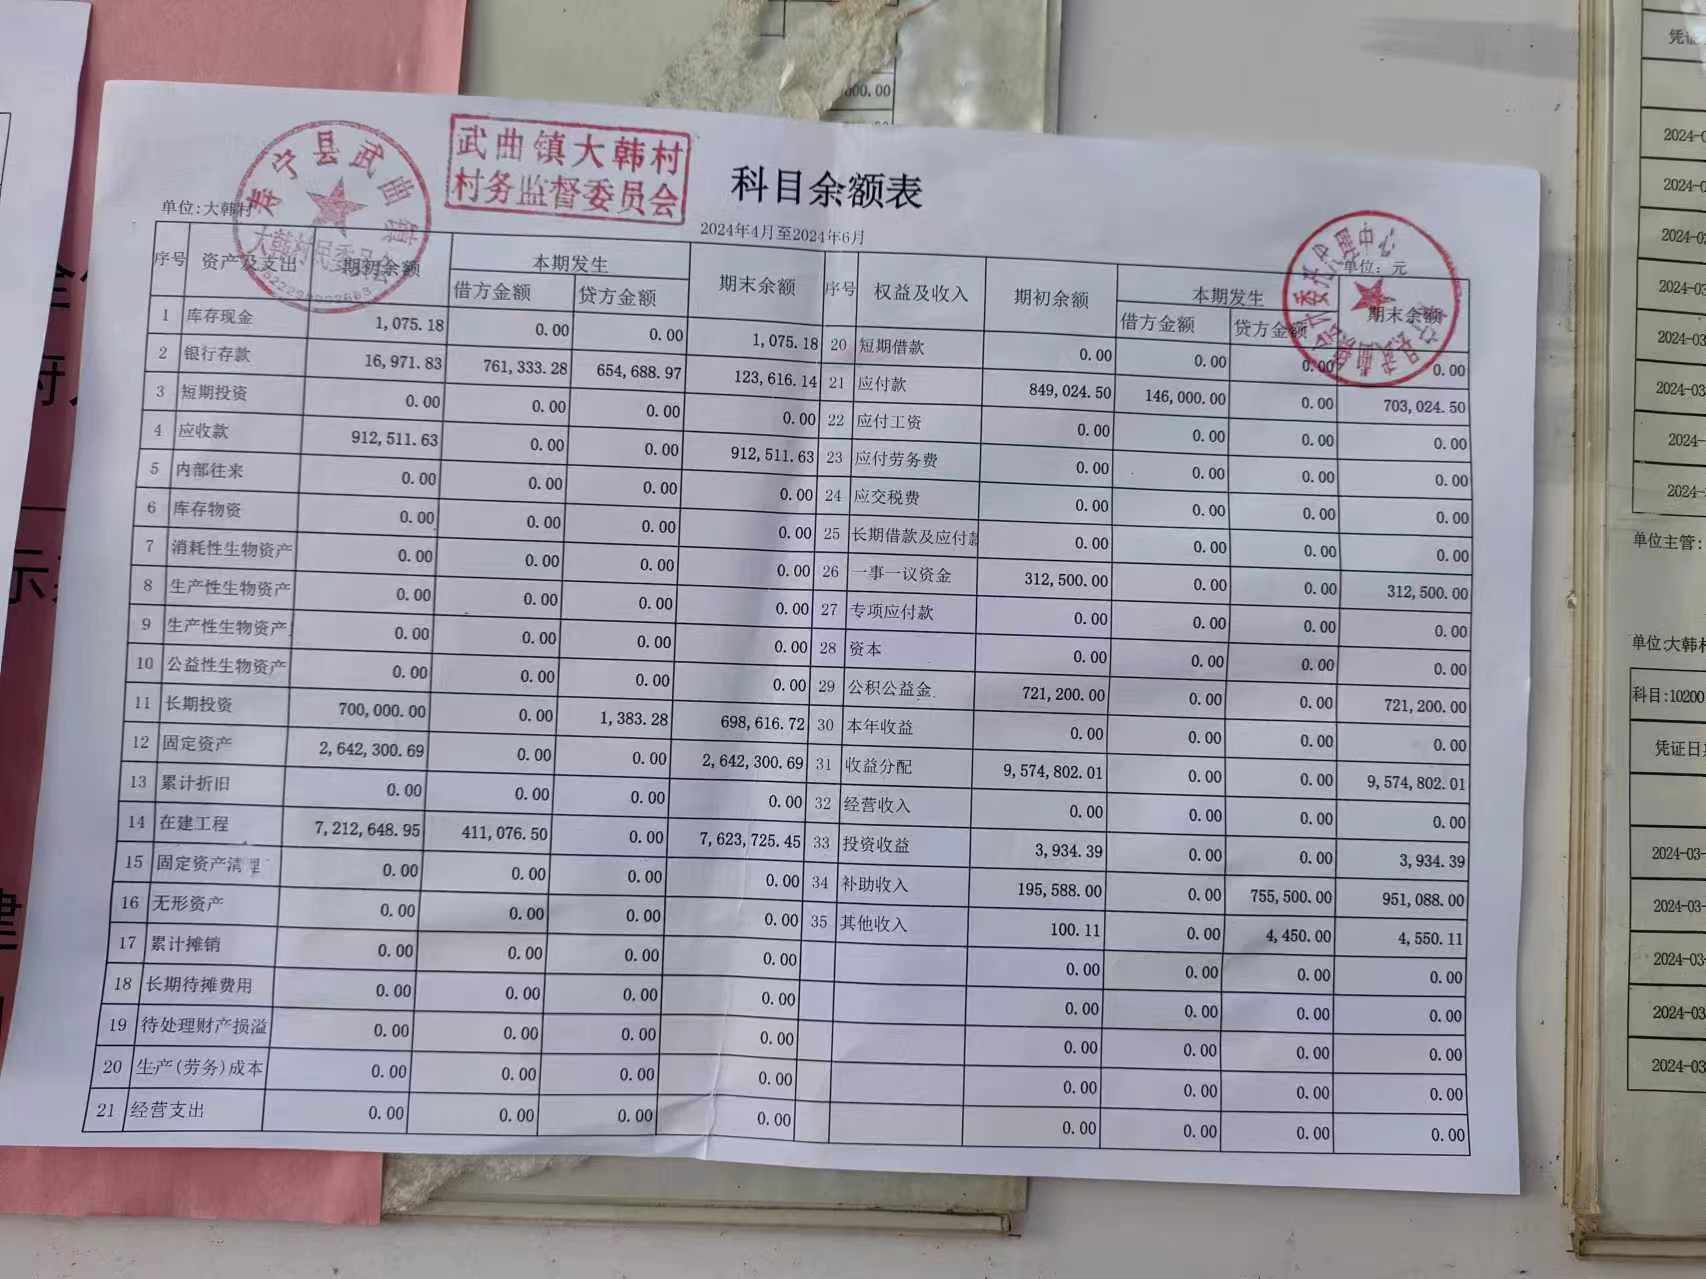 寿宁县武曲镇
大韩村民委员会
武曲镇大韩村
村务监督委员会
科目余额表
单位:大韩村
2024年4月至2024年6月
单位：元
序号 资产及支出 期初余额 本期发生 期末余额 序号 权益及收入 期初余额 本期发生 期末余额
借方金额 贷方金额 借方金额 贷方金额
1 库存现金 1,075.18 0.00 0.00 1,075.18 20 短期借款 0.00 0.00 0.00 0.00
2 银行存款 16,971.83 761,333.28 654,688.97 123,616.14 21 应付款 849,024.50 146,000.00 0.00 703,024.50
3 短期投资 0.00 0.00 0.00 0.00 22 应付工资 0.00 0.00 0.00 0.00
4 应收款 912,511.63 0.00 0.00 912,511.63 23 应付劳务费 0.00 0.00 0.00 0.00
5 内部往来 0.00 0.00 0.00 0.00 24 应交税费 0.00 0.00 0.00 0.00
6 库存物资 0.00 0.00 0.00 0.00 25 长期借款及应付款 0.00 0.00 0.00 0.00
7 消耗性生物资产 0.00 0.00 0.00 0.00 26 一事一议资金 312,500.00 0.00 0.00 312,500.00
8 生产性生物资产 0.00 0.00 0.00 0.00 27 专项应付款 0.00 0.00 0.00 0.00
9 生产性生物资产 0.00 0.00 0.00 0.00 28 资本 0.00 0.00 0.00 0.00
10 公益性生物资产 0.00 0.00 0.00 0.00 29 公积公益金 721,200.00 0.00 0.00 721,200.00
11 长期投资 700,000.00 0.00 1,383.28 698,616.72 30 本年收益 0.00 0.00 0.00 0.00
12 固定资产 2,642,300.69 0.00 0.00 2,642,300.69 31 收益分配 9,574,802.01 0.00 0.00 9,574,802.01
13 累计折旧 0.00 0.00 0.00 0.00 32 经营收入 0.00 0.00 0.00 0.00
14 在建工程 7,212,648.95 411,076.50 0.00 7,623,725.45 33 投资收益 3,934.39 0.00 0.00 3,934.39
15 固定资产清理 0.00 0.00 0.00 0.00 34 补助收入 195,588.00 0.00 755,500.00 951,088.00
16 无形资产 0.00 0.00 0.00 0.00 35 其他收入 100.11 0.00 4,450.00 4,550.11
17 累计摊销 0.00 0.00 0.00 0.00 0.00 0.00 0.00 0.00
18 长期待摊费用 0.00 0.00 0.00 0.00 0.00 0.00 0.00 0.00
19 待处理财产损溢 0.00 0.00 0.00 0.00 0.00 0.00 0.00 0.00
20 生产(劳务)成本 0.00 0.00 0.00 0.00 0.00 0.00 0.00 0.00
21 经营支出 0.00 0.00 0.00 0.00 0.00 0.00 0.00 0.00
000.00
凭证
2024-0
2024-0
2024-02
2024-03
2024-03
2024-03
2024-
2024-
单位主管:
单位:大韩村
科目:10200
凭证日
2024-03-
2024-03-
2024-03-
2024-03
2024-03